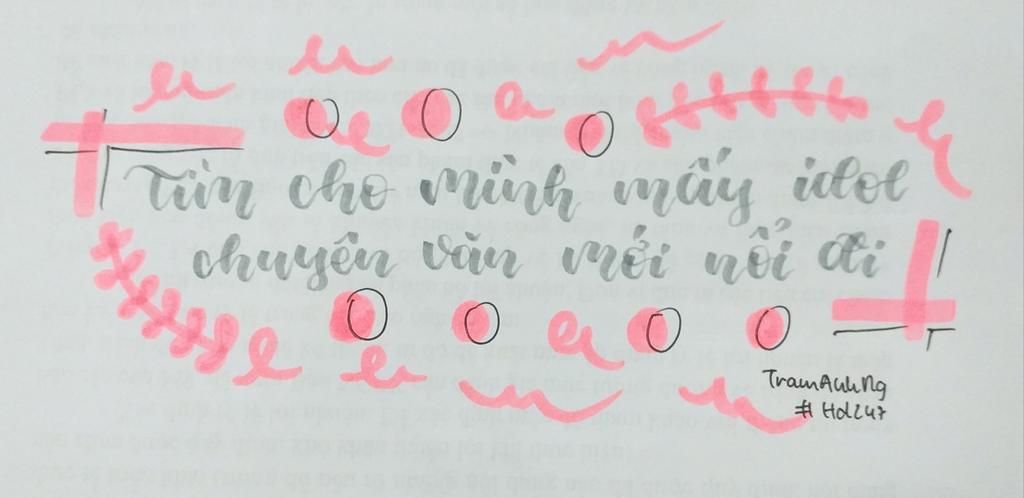 Tìm cho mình mấy idol
chuyên văn mới nổi đi
TramAnhNg
# Hdl247